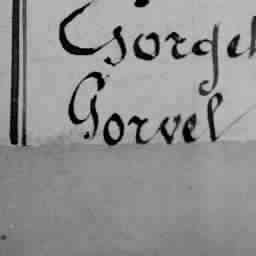 Gorgel
Gorvel